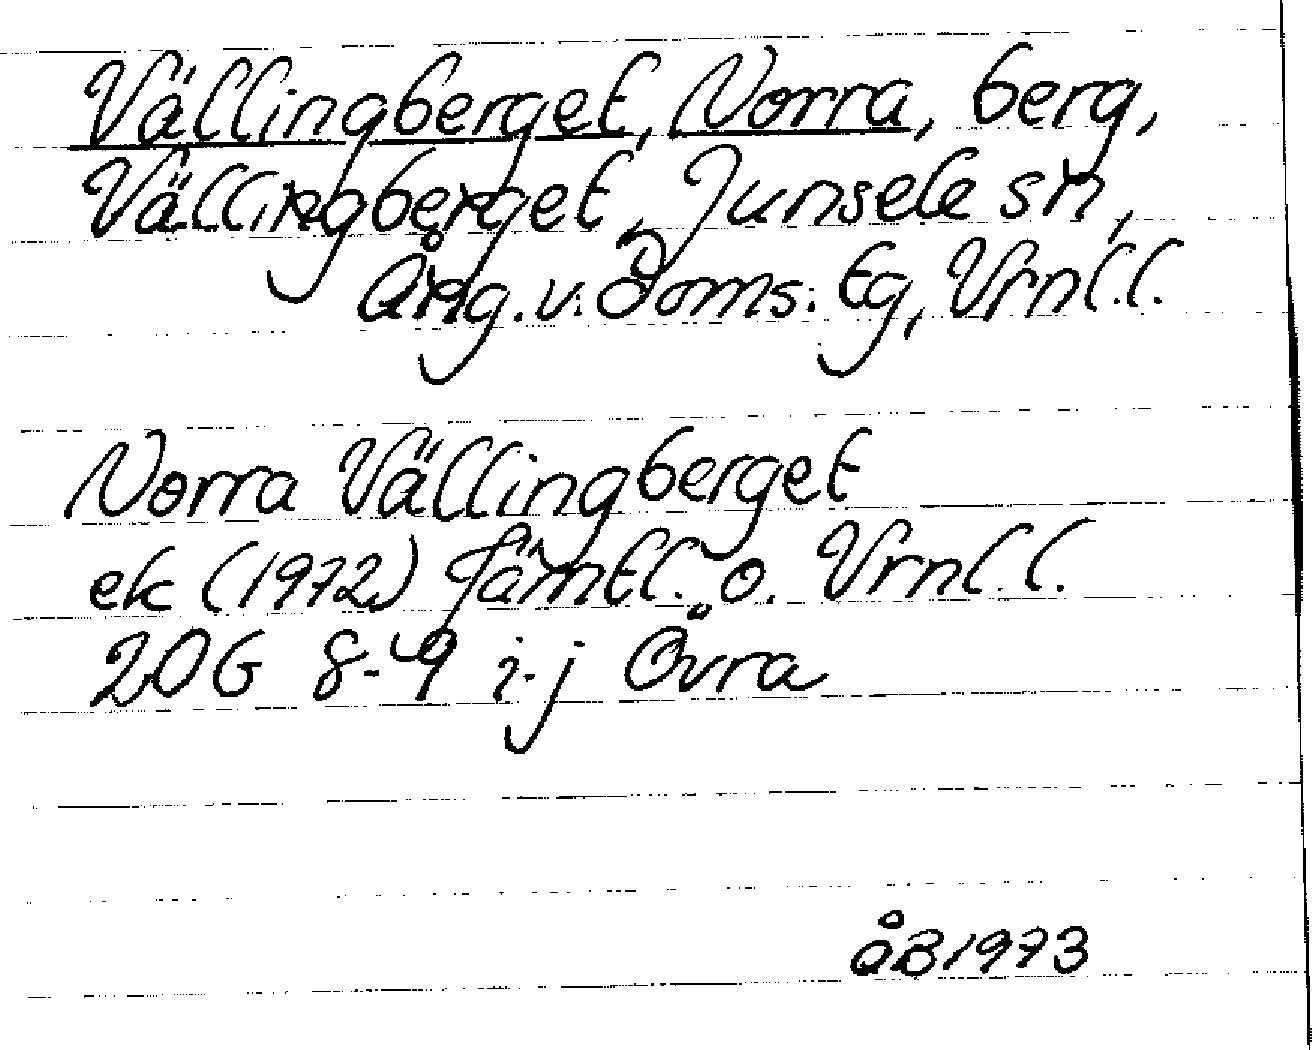 Vällingberget, Norra, berg,
Vällingberget, Junsele sn,
Ång.v:Doms:tg, Vrnl.l.
Norra Vällingberget
ek (1972) Jämtl. o. Vrnl.l.
20G 8-9 i-j Övra
åB1973